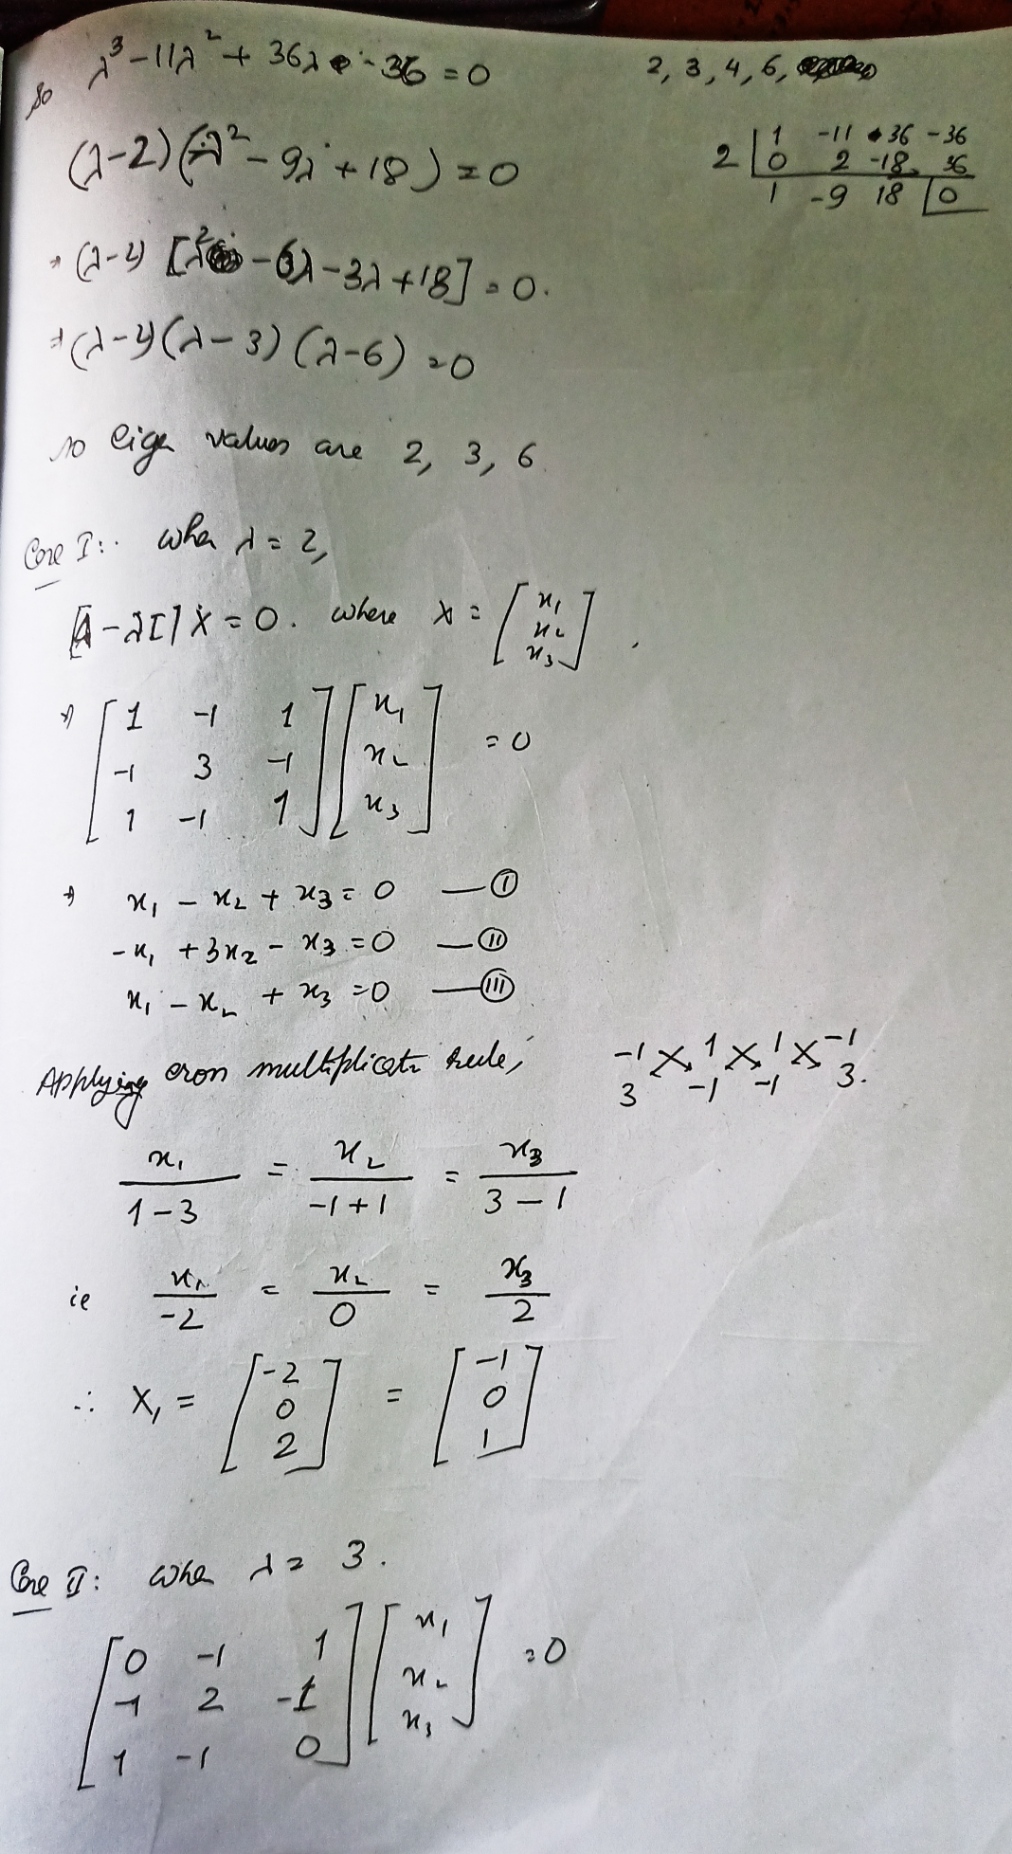 So λ³ - 11λ² + 36λ - 36 = 0
2, 3, 4, 6,
(λ-2)(λ² - 9λ + 18) = 0
2 | 1 -11 36 -36
0 2 -18 36
1 -9 18 | 0
⇒ (λ-2) [λ² - 6λ - 3λ + 18] = 0.
⇒ (λ-2)(λ-3)(λ-6) = 0
so eigen values are 2, 3, 6
Case I: when λ = 2,
[A - λI] X = 0. where X = [x₁ x₂ x₃]
⇒ [1 -1 1] [x₁]
[-1 3 -1] [x₂] = 0
[1 -1 1] [x₃]
⇒ x₁ - x₂ + x₃ = 0 — (I)
-x₁ + 3x₂ - x₃ = 0 — (II)
x₁ - x₂ + x₃ = 0 — (III)
Applying cross multiplication rule,
-1 × 1 × 1 × -1
3 -1 -1 3.
x₁/(1-3) = x₂/(-1+1) = x₃/(3-1)
ie x₁/-2 = x₂/0 = x₃/2
∴ X₁ = [-2 0 2] = [-1 0 1]
Case II: when λ = 3.
[0 -1 1] [x₁]
[-1 2 -1] [x₂] = 0
[1 -1 0] [x₃]